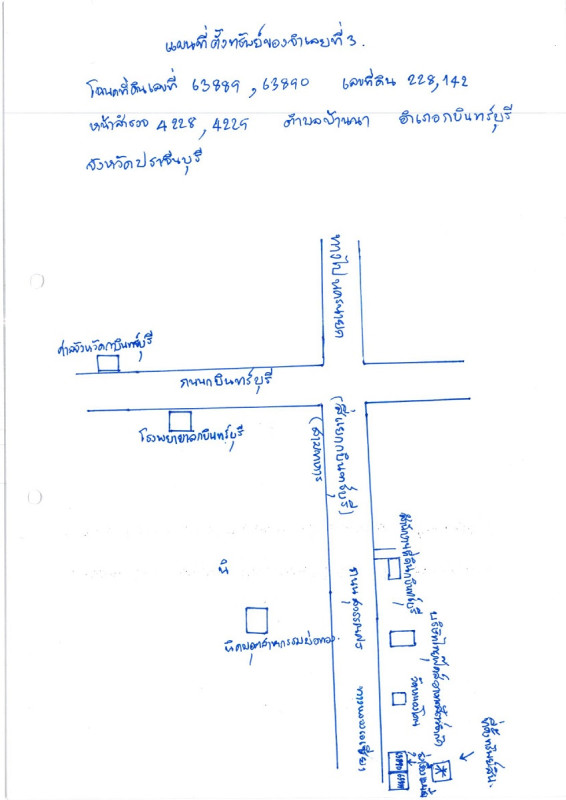 แผนที่ตั้งทรัพย์ของจำเลยที่ 3.
โฉนดที่ดินเลขที่ 63889, 63890 เลขที่ดิน 228, 142
หน้าสำรวจ 4228, 4229 ตำบลบ้านนา อำเภอกบินทร์บุรี
จังหวัดปราจีนบุรี
ทางไปนครนายก
ศาลจังหวัดกบินทร์บุรี
ถนนกบินทร์บุรี
โรงพยาบาลกบินทร์บุรี
(สี่แยกกบินทร์บุรี)
(สามทหาร)
สำนักงานที่ดินกบินทร์บุรี
นิ
ถนนสุวรรณศร
นิคมอุตสาหกรรมบ่อทอง.
ที่ตั้งทรัพย์สิน.